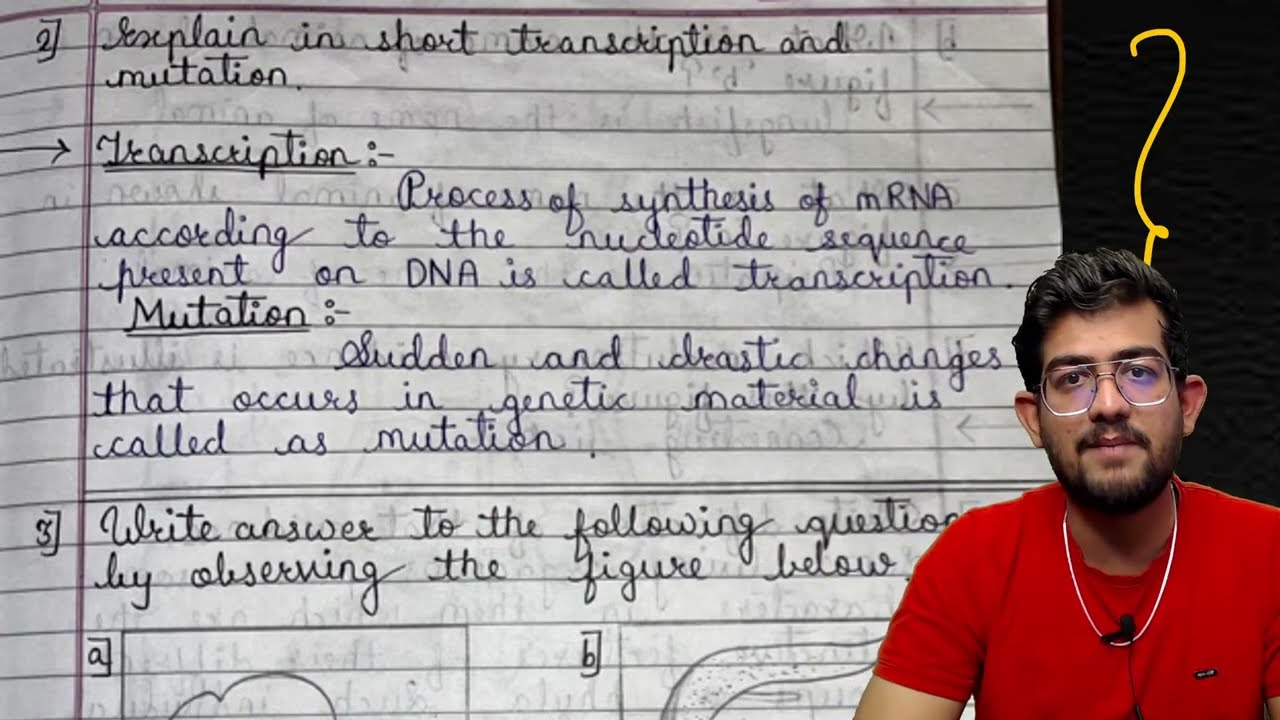 2] Explain in short transcription and
mutation.
→ Transcription :-
Process of synthesis of mRNA
according to the nucleotide sequence
present on DNA is called transcription.
Mutation :-
Sudden and drastic changes
that occurs in genetic material is
called as mutation.
3] Write answer to the following question
by observing the figure below.
a] b]